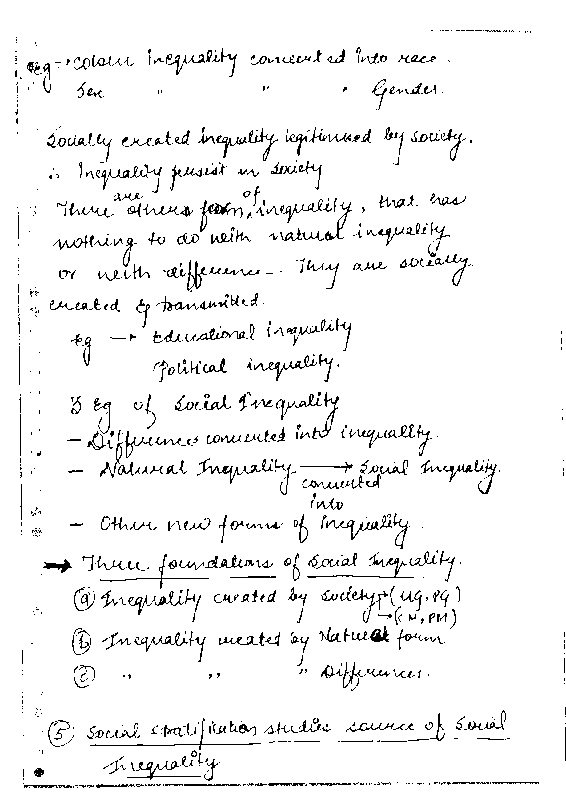 Eg → colour Inequality converted Into race.
Sex " " " Gender.
Socially created inequality legitimised by society.
∴ Inequality persist in society
There are others form of inequality, that has
nothing to do with natural inequality
or with difference -. They are socially
created & transmitted.
Eg → Educational inequality
Political inequality.
3 Eg of Social Inequality
- Differences converted into inequality.
- Natural Inequality → Social Inequality.
converted
into
- Other new forms of Inequality.
→ Three foundations of Social Inequality.
(a) Inequality created by society → (UG, PG)
→ (CM, PM)
(b) Inequality created by Natural form
(c) " " " Differences.
(5) Social stratification studies source of Social
Inequality